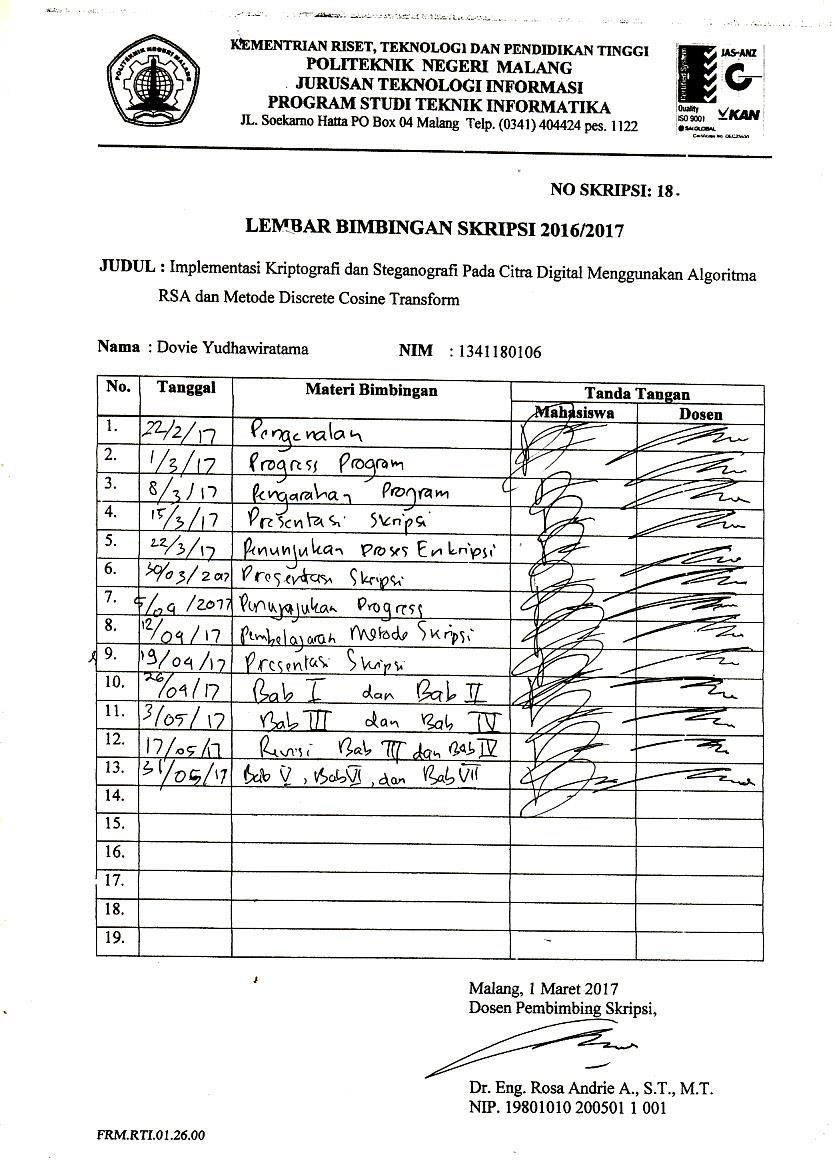 KEMENTRIAN RISET, TEKNOLOGI DAN PENDIDIKAN TINGGI
POLITEKNIK NEGERI MALANG
JURUSAN TEKNOLOGI INFORMASI
PROGRAM STUDI TEKNIK INFORMATIKA
JL. Soekarno Hatta PO Box 04 Malang Telp. (0341) 404424 pes. 1122
POLITEKNIK NEGERI MALANG
JAS-ANZ
Quality
ISO 9001
KAN
SAI GLOBAL
NO SKRIPSI: 18.
LEMBAR BIMBINGAN SKRIPSI 2016/2017
JUDUL : Implementasi Kriptografi dan Steganografi Pada Citra Digital Menggunakan Algoritma
RSA dan Metode Discrete Cosine Transform
Nama : Dovie Yudhawiratama NIM : 1341180106
No. Tanggal Materi Bimbingan Tanda Tangan
Mahasiswa Dosen
1. 22/2/17 Pengenalan
2. 1/3/17 Progress Program
3. 8/3/17 Pengarahan Program
4. 15/3/17 Presentasi Skripsi
5. 22/3/17 Penunjukan Proses Enkripsi
6. 30/03/2017 Presentasi Skripsi
7. 5/04/2017 Penunjukan Progress
8. 12/04/17 Pembelajaran Metode Skripsi
9. 19/04/17 Presentasi Skripsi
10. 26/04/17 Bab I dan Bab II
11. 3/05/17 Bab III dan Bab IV
12. 17/05/17 Revisi Bab III dan Bab IV
13. 31/05/17 Bab V, Bab VI, dan Bab VII
14.
15.
16.
17.
18.
19.
Malang, 1 Maret 2017
Dosen Pembimbing Skripsi,
Dr. Eng. Rosa Andrie A., S.T., M.T.
NIP. 19801010 200501 1 001
FRM.RTI.01.26.00